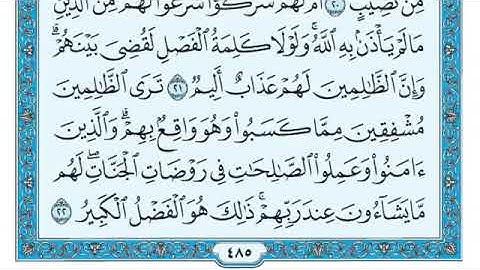 مِن نَّصِيبٍ ٢٠ أَمۡ لَهُمۡ شُرَكَٰٓؤُاْ شَرَعُواْ لَهُم مِّنَ ٱلدِّينِ
مَا لَمۡ يَأۡذَنۢ بِهِ ٱللَّهُۚ وَلَوۡلَا كَلِمَةُ ٱلۡفَصۡلِ لَقُضِيَ بَيۡنَهُمۡۗ
وَإِنَّ ٱلظَّٰلِمِينَ لَهُمۡ عَذَابٌ أَلِيمٞ ٢١ تَرَى ٱلظَّٰلِمِينَ
مُشۡفِقِينَ مِمَّا كَسَبُواْ وَهُوَ وَاقِعُۢ بِهِمۡۗ وَٱلَّذِينَ
ءَامَنُواْ وَعَمِلُواْ ٱلصَّٰلِحَٰتِ فِي رَوۡضَاتِ ٱلۡجَنَّاتِۖ لَهُم
مَّا يَشَآءُونَ عِندَ رَبِّهِمۡۚ ذَٰلِكَ هُوَ ٱلۡفَضۡلُ ٱلۡكَبِيرُ ٢٢
٤٨٥